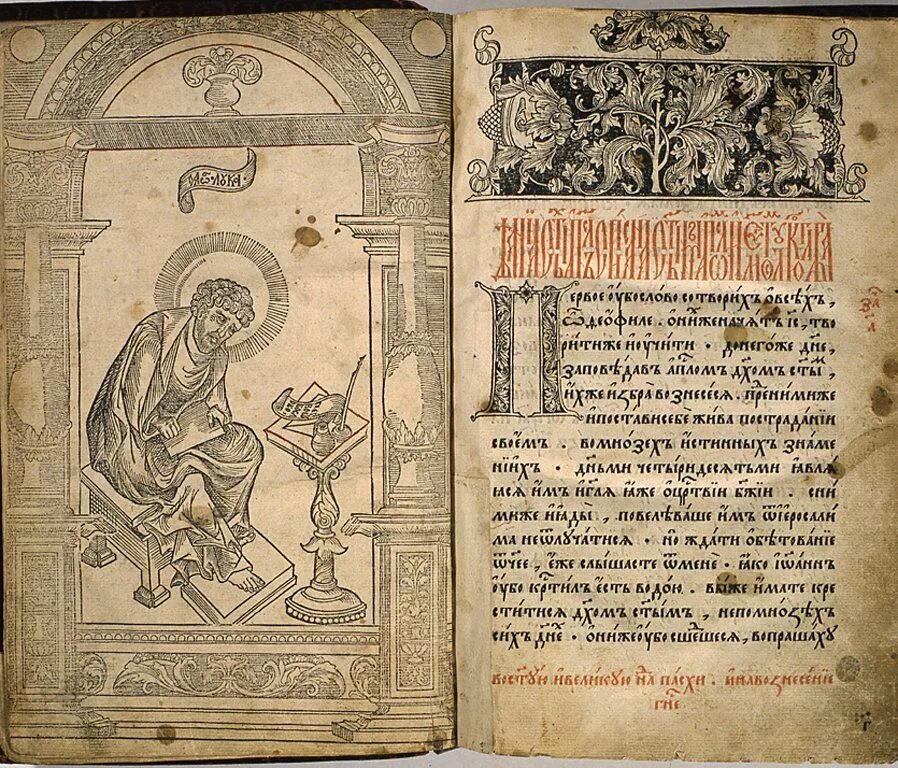 ст҃ы лꙋка
Первое ᲂу҆бо слово сотвори́хъ ѡ҆ всѣ́хъ,
ѽ ѳеѡ҆фи́ле. ѡ҆ ни́хже нача́тъ і҆с, тво
ри́тиже и҆ ᲂу҆чи́ти · до негѡ́же дн҃е,
заповѣ́давъ а҆пⷭ҇ломъ дх҃омъ ст҃ы́,
и҆́хже и҆збра̀ вознесе́сѧ. пред ни́миже
и҆ поста́ви себѐ жи́ва по страда́нїи
свое́мъ. во мно́зехъ и҆́стинныхъ зна́ме
нїихъ · дн҃ьми четы́ридесѧтьми ꙗ҆влѧ́
ꙗсѧ и҆̀мъ и҆ гл҃ѧ ꙗ҆́же ѡ҆ цр҃твїи бж҃їи. сни́
миже и҆ ꙗ҆ды̀, повелѣва́ше и҆̀мъ ѿ і҆еросали́
ма не ѿлꙋча́тисѧ · но жда́ти ѡ҆бѣтова́нїе
ѿч҃ее, є҆́же слы́шасте ѿ менѐ · ꙗ҆́ко і҆ѡ҆а́ннъ
ᲂу҆́бо крⷭ҇ти́лъ є҆́сть водо́ю. вы́же и҆́мате кре
сти́тисѧ дх҃омъ ст҃ы́мъ, не по мно́ѕѣхъ
си́хъ дн҃е · ѻ҆ни́же ᲂу҆̀бо сше́дшесѧ, вопраша́хꙋ
во ст҃ꙋю и҆ вели́кꙋю нⷣе па́схи. и҆ на вознесе́нїе
гн҃е